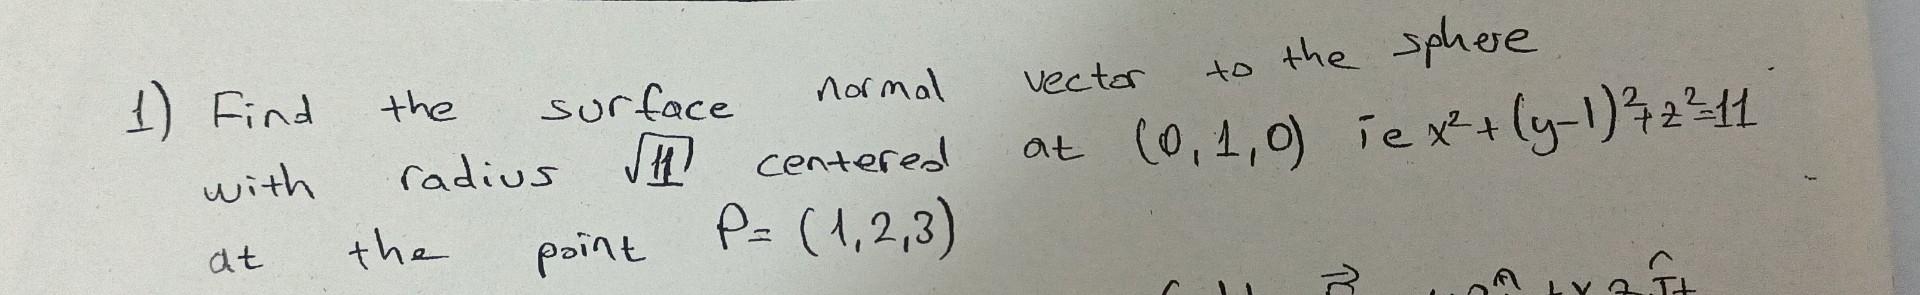 1) Find the surface normal vector to the sphere
with radius √11 centered at (0,1,0) ie x²+(y-1)²+z²=11
at the point P=(1,2,3)